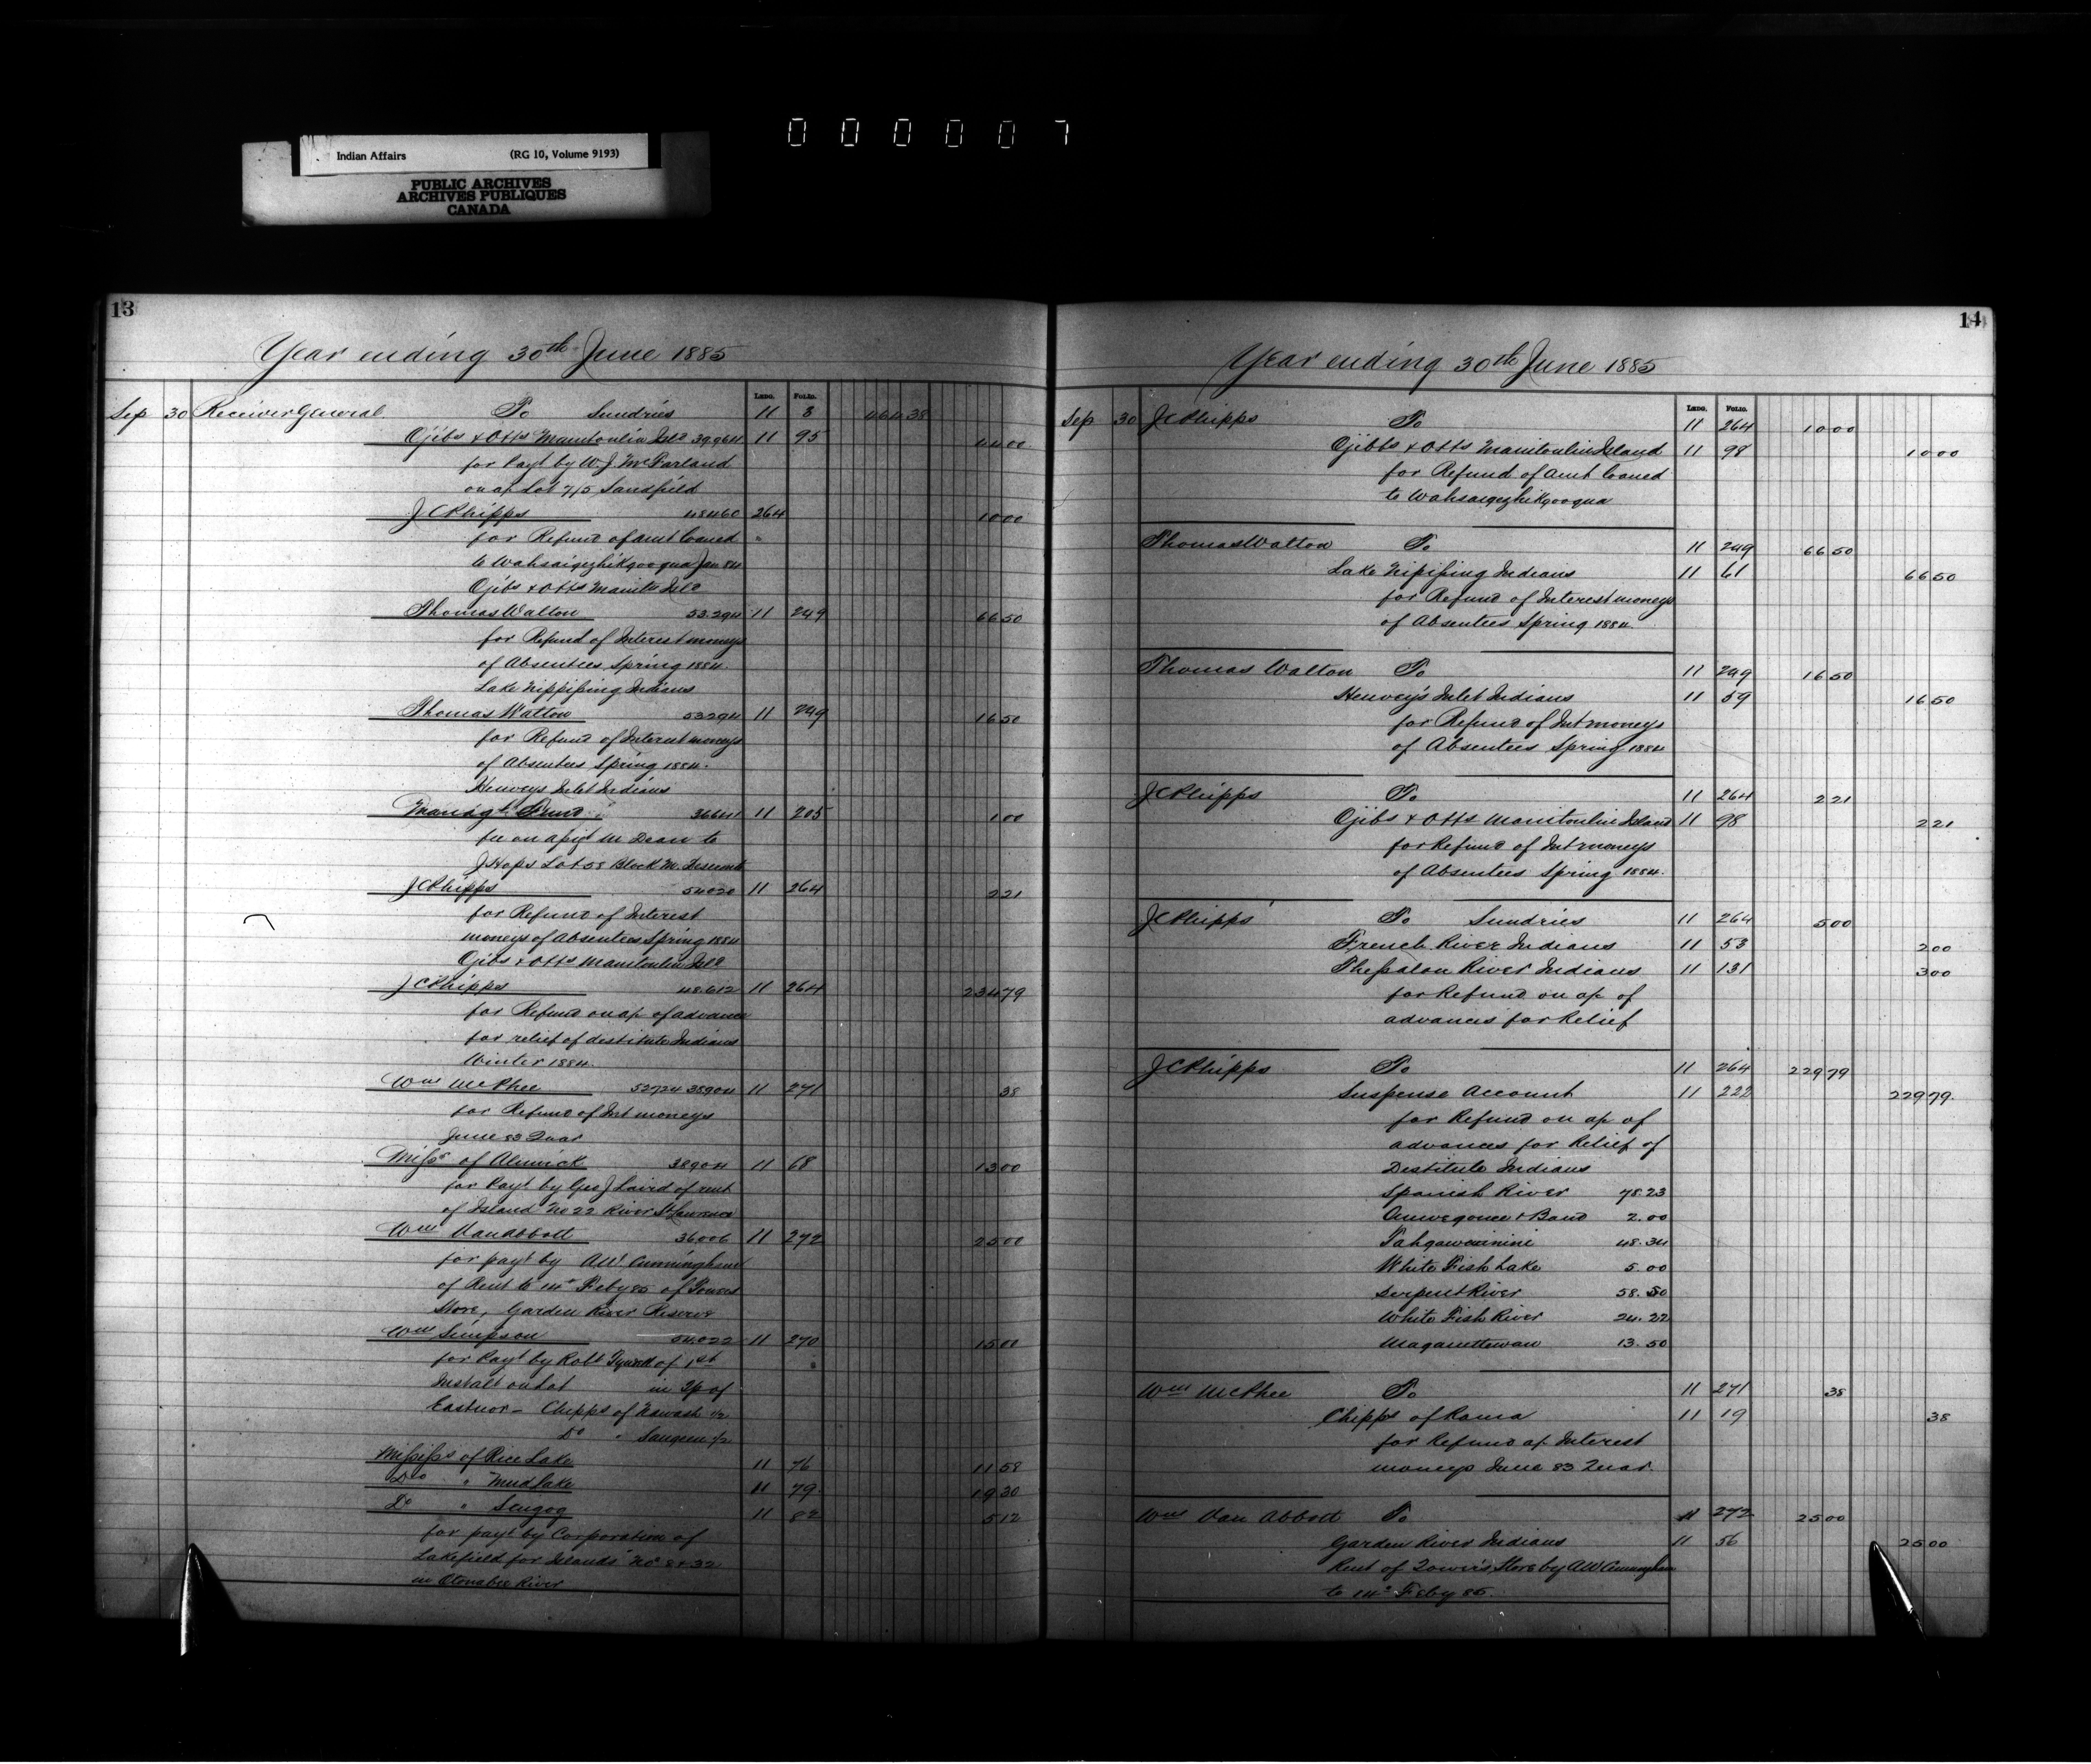 0 0 0 0 0 7
Indian Affairs (RG 10, Volume 9193)
PUBLIC ARCHIVES
ARCHIVES PUBLIQUES
CANADA
13
Year ending 30th June 1885
Ledg. Folio.
Sep 30 Receiver General To Sundries 11 3 464 38
Ojibs & Otts Manitoulin Isld 39964 11 95 44 00
for Payt by W. J. McFarland
on a/c Lot 7/5 Sandfield
J C Phipps 48460 264 10 00
for Refund of amt loaned "
to Wahsaigezhikgooqua Jan 84
Ojibs & Otts Manito Isld
Thomas Walton 53.294 11 249 66 50
for Refund of Interest moneys
of Absentees Spring 1884.
Lake Nippissing Indians
Thomas Walton 53294 11 249 16 50
for Refund of Interest moneys
of Absentees Spring 1884.
Henveys Inlet Indians
Managt Fund 36641 11 205 1 00
fee on M Dean to
J Hops Lot 58 Block M.
J C Phipps 54020 11 264 2 21
for Refund of Interest
moneys of Absentees Spring 1884
Ojibs & Otts Manitoulin Isld
J C Phipps 48.612 11 264 234 79
for Refund on a/c of advance
for relief of destitute Indians
Winter 1884.
Wm McPhee 52724 38904 11 271 38
for Refund of Int moneys
June 83 Quar
Missrs of Alnwick 38904 11 68 13 00
for Payt by Geo J Laird of rent
of Island No 22 River St Lawrence
Wm Van Abbott 36006 11 272 25 00
for payt by AW Cunningham
of Rent to 14th Feby 85 of Towers
Store, Garden River Reserve
Wm Simpson 54022 11 270 15 00
for Payt by Robt of 1st
Instalt on Lot in Tp of
Eastnor - Chipps of Nawash 1/2
Do " Saugeen 1/2
Mississs of Rice Lake 11 76 11 58
Do " Mud Lake 11 79 19 30
Do " Scugog 11 82 5 12
for payt by Corporation of
Lakefield for Islands No 8 & 32
in Otonabee River
14
Year ending 30th June 1885
Ledg. Folio.
Sep 30 J C Phipps To 11 264 10 00
Ojibbs & Otts Manitoulin Island 11 98 10 00
for Refund of amt loaned
to Wahsaigezhikgooqua
Thomas Walton To 11 249 66 50
Lake Nipissing Indians 11 61 66 50
for Refund of Interest moneys
of Absentees Spring 1884.
Thomas Walton To 11 249 16 50
Henvey's Inlet Indians 11 59 16 50
for Refund of Int moneys
of Absentees Spring 1884
J C Phipps To 11 264 2 21
Ojibs & Otts Manitoulin Island 11 98 2 21
for Refund of Int moneys
of Absentees Spring 1884.
J C Phipps To Sundries 11 264 5 00
French River Indians 11 53 2 00
Thessalon River Indians 11 131 3 00
for Refund on a/c of
advances for Relief
J C Phipps To 11 264 229 79
Suspense Account 11 222 229 79
for Refund on a/c of
advances for Relief of
Destitute Indians
Spanish River 78.23
& Band 2.00
Tahgawinini 48.34
White Fish Lake 5.00
Serpent River 58.50
White Fish River 24.22
Maganettewan 13.50
Wm McPhee To 11 271 38
Chipps of Rama 11 19 38
for Refund a/c Interest
moneys June 83 Quar.
Wm Van Abbott To 11 272 25 00
Garden River Indians 11 56 25 00
Rent of Towers Store by AW Cunningham
to 14th Feby 85.